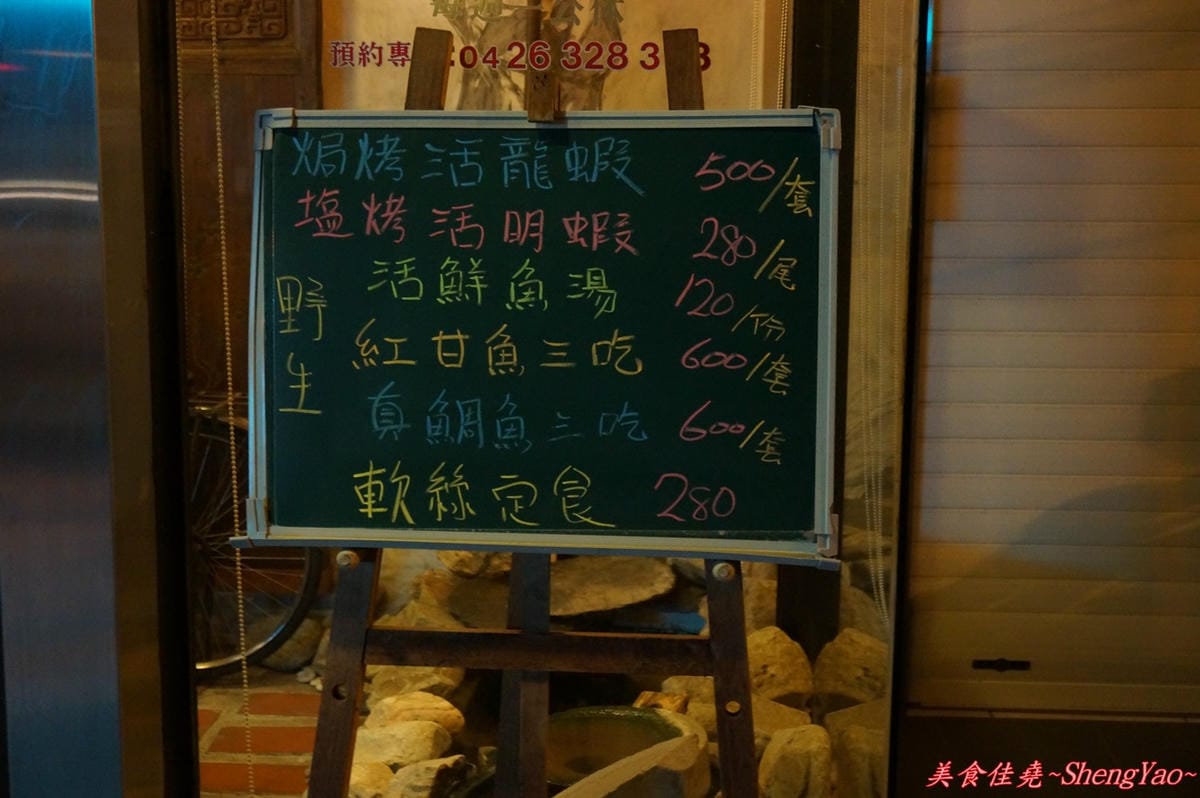 預約專
0426 328 3
焗烤活龍蝦 500/套
塩烤活明蝦 280/尾
活鮮魚湯 120/份
野生
紅甘魚三吃 600/套
真鯛魚三吃 600/套
軟絲定食 280
美食佳堯~ShengYao~